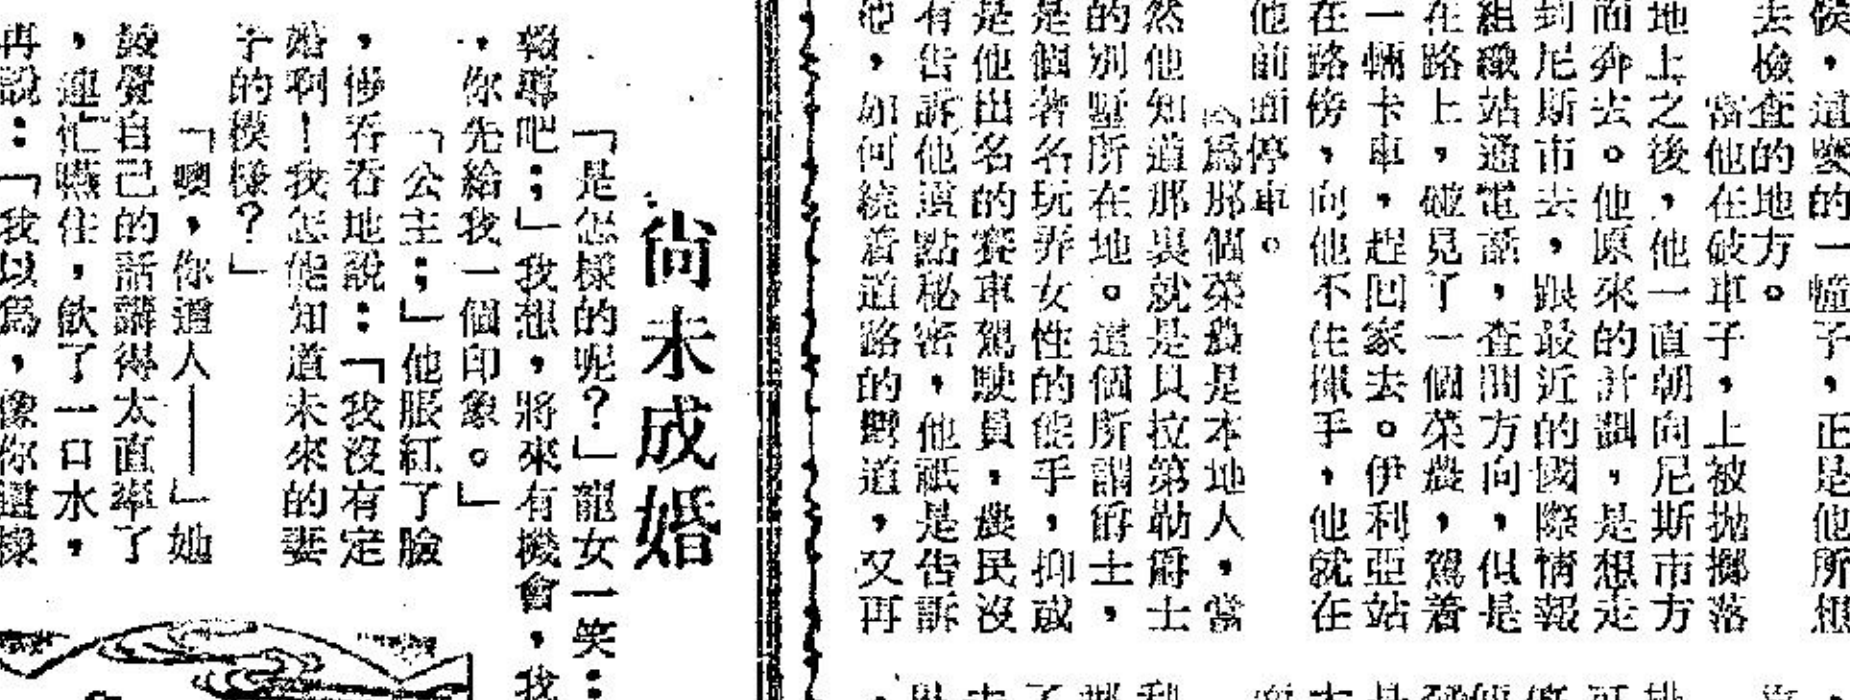 候，這麼的一幢子，正是他所想
去檢查的地方。
當他在破車子，上被拋擲落
地上之後，他一直朝向尼斯市方
面奔去。他原來的計劃，是想走
到尼斯市去，跟最近的國際情報
組織站通電話，查問方向，但是
在路上，碰見了一個菜農，駕着
一輛卡車，趕回家去。伊利亞站
在路傍，向他不住揮手，他就在
他前面停車。
因爲那個菜農是本地人，當
然他知道那裏就是貝拉第勒爵士
的別墅所在地。這個所謂爵士，
是個著名玩弄女性的能手，抑或
是他出名的賽車駕駛員，農民沒
有告訴他這點秘密，他祇是告訴
他，如何繞着道路的彎道，又再
尙未成婚
「是怎樣的呢？」龍女一笑：
報導吧；」我想，將來有機會，我
，你先給我一個印象。」
「公主；」他脹紅了臉
，慘吞吞地說：「我沒有定
婚啊！我怎能知道未來的妻
子的模樣？」
「噢，你這人——」她
放覺自己的話講得太直率了
，連忙嚥住，飲了一口水，
再說：「我以爲，像你這樣